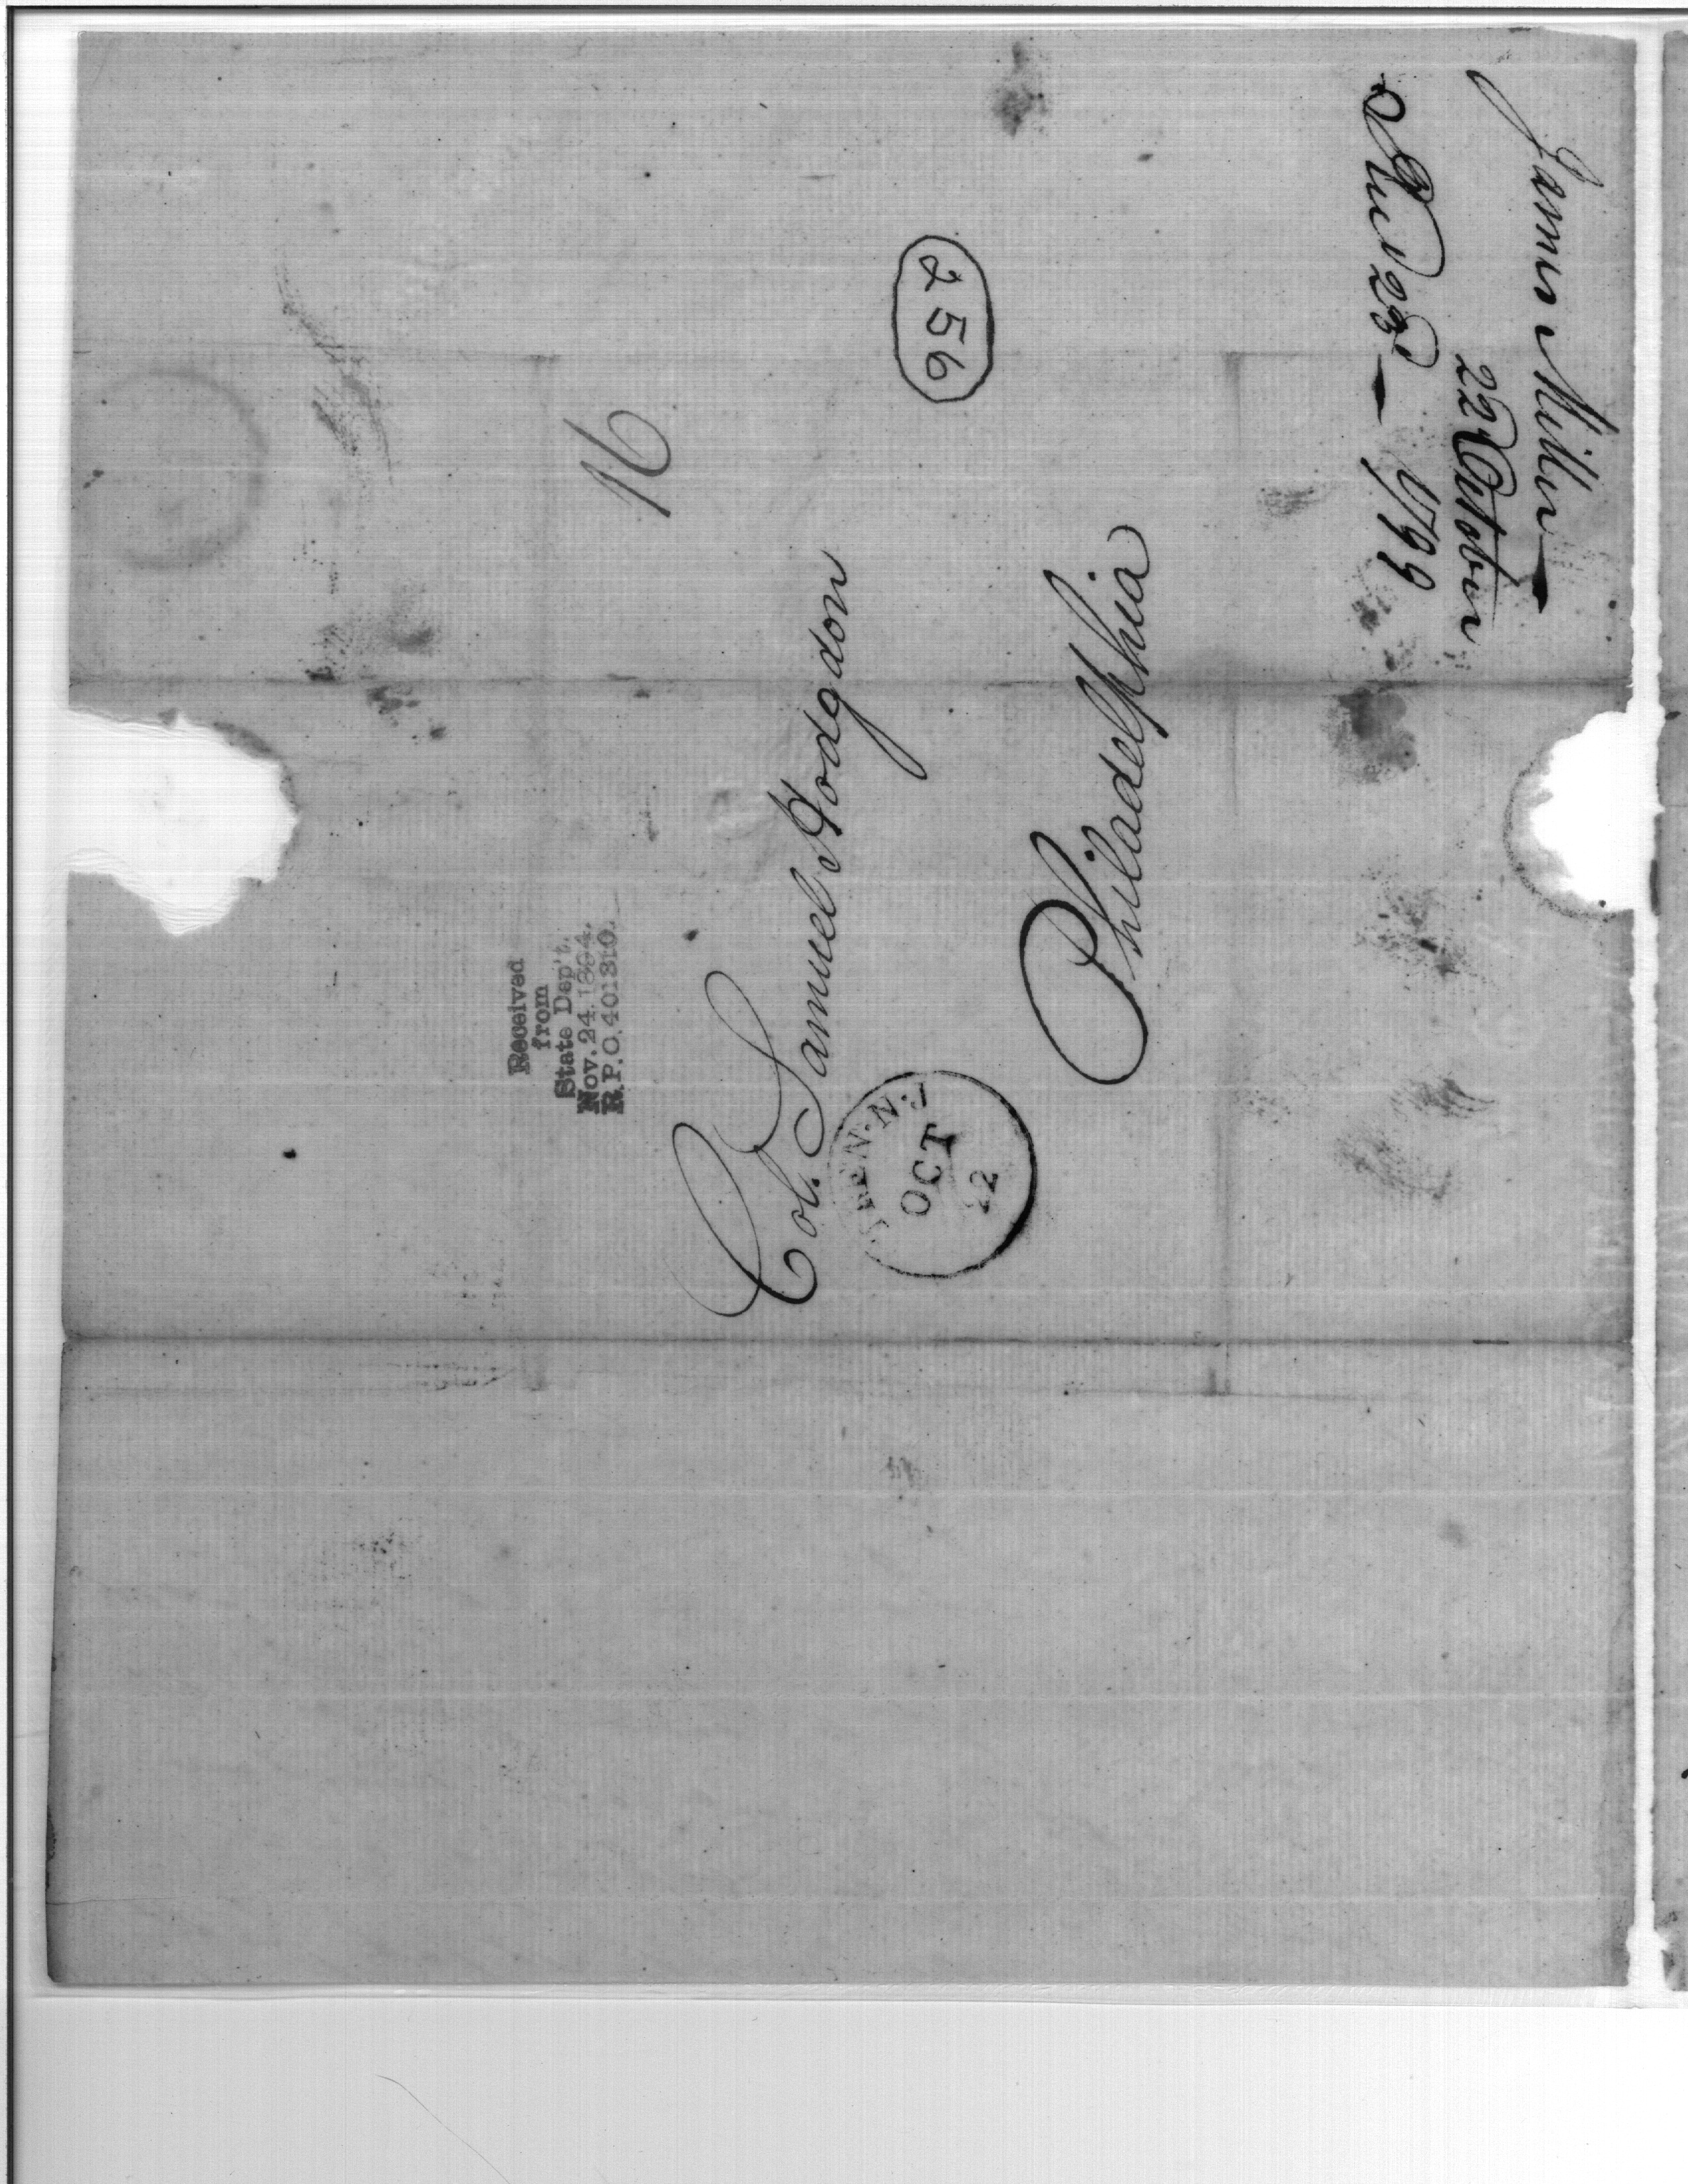 James Miller
22 October
Recd 23d 1799
256
16
Received
from
State Dep't.
Nov. 24. 1894.
R.P.O. 401310.
Col. Samuel Hodgdon
Philadelphia
N. J
OCT
22